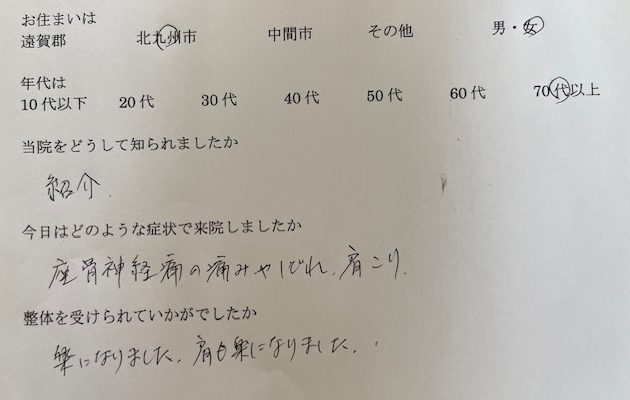 お住まいは
遠賀郡 北九州市 中間市 その他 男・女
年代は
10代以下 20代 30代 40代 50代 60代 70代以上
当院をどうして知られましたか
紹介.
今日はどのような症状で来院しましたか
座骨神経痛の痛みやしびれ、肩こり.
整体を受けられていかがでしたか
楽になりました、肩も楽になりました、.